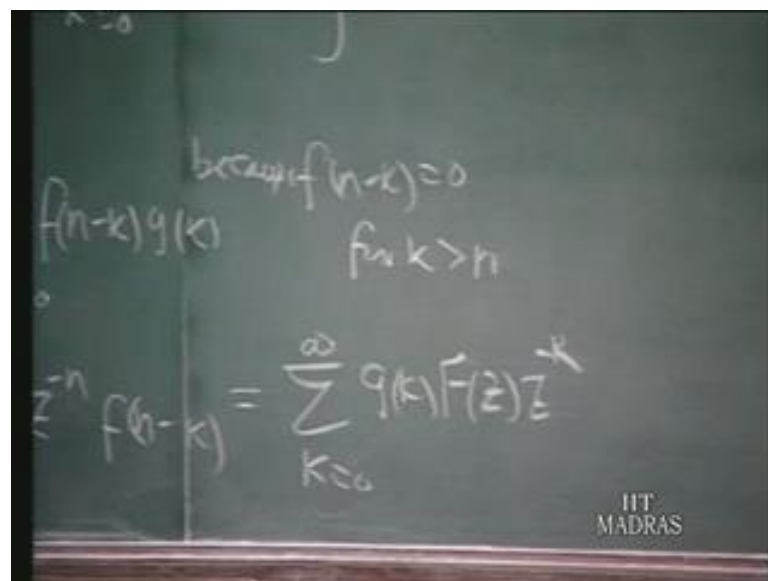 k=0
because f(n-k)=0
f(n-k)g(k)
for k>n
0
∞
z^{-n} f(n-k) = ∑ g(k)F(z)z^{-k}
k=0
IIT
MADRAS